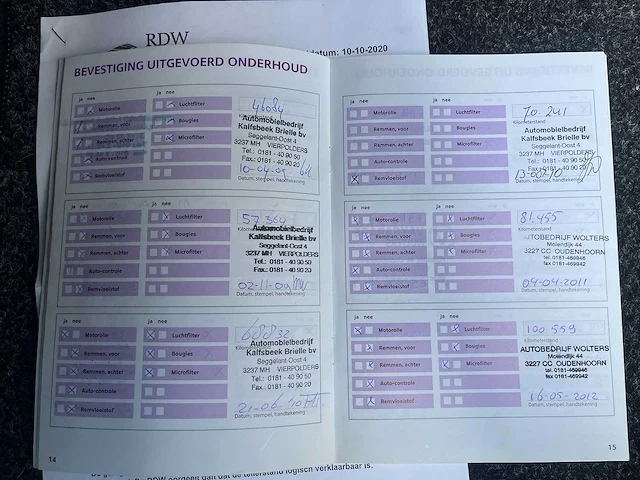 RDW
datum: 10-10-2020
BEVESTIGING UITGEVOERD ONDERHOUD
ja nee ja nee
Motorolie Luchtfilter 46084
Remmen, voor Bougies Automobielbedrijf
Kalfsbeek Brielle bv
Remmen, achter Microfilter Seggelant-Oost 4
3237 MH VIERPOLDERS
Auto-controle Tel.: 0181 - 40 90 50
Fax.: 0181 - 40 90 20
Remvloeistof 10-04-09
Datum, stempel, handtekening
ja nee ja nee
Motorolie Luchtfilter 57364
Remmen, voor Bougies Automobielbedrijf
Kalfsbeek Brielle bv
Remmen, achter Microfilter Seggelant-Oost 4
3237 MH VIERPOLDERS
Auto-controle Tel.: 0181 - 40 90 50
Fax.: 0181 - 40 90 20
Remvloeistof 02-11-09
Datum, stempel, handtekening
ja nee ja nee
Motorolie Luchtfilter 68832
Remmen, voor Bougies Automobielbedrijf
Kalfsbeek Brielle bv
Remmen, achter Microfilter Seggelant-Oost 4
3237 MH VIERPOLDERS
Auto-controle Tel.: 0181 - 40 90 50
Fax.: 0181 - 40 90 20
Remvloeistof 21-06-10
Datum, stempel, handtekening
14
ja nee ja nee
Motorolie Luchtfilter 70.241
Kilometerstand
Remmen, voor Bougies Automobielbedrijf
Kalfsbeek Brielle bv
Remmen, achter Microfilter Seggelant-Oost 4
3237 MH VIERPOLDERS
Auto-controle Tel.: 0181 - 40 90 50
Fax.: 0181 - 40 90 20
Remvloeistof
Datum, stempel, handtekening
ja nee ja nee
Motorolie Luchtfilter 81.455
Kilometerstand
Remmen, voor Bougies AUTOBEDRIJF WOLTERS
Molendijk 44
Remmen, achter Microfilter 3227 CC OUDENHOORN
tel. 0181-469946
Auto-controle fax 0181-469942
Remvloeistof 04-04-2011
Datum, stempel, handtekening
ja nee ja nee
Motorolie Luchtfilter 100 559
Kilometerstand
Remmen, voor Bougies AUTOBEDRIJF WOLTERS
Molendijk 44
Remmen, achter Microfilter 3227 CC OUDENHOORN
tel. 0181-469946
Auto-controle fax 0181-469942
Remvloeistof 16-05-2012
Datum, stempel, handtekening
15
RDW oordeelt dan dat de tellerstand logisch verklaarbaar is.